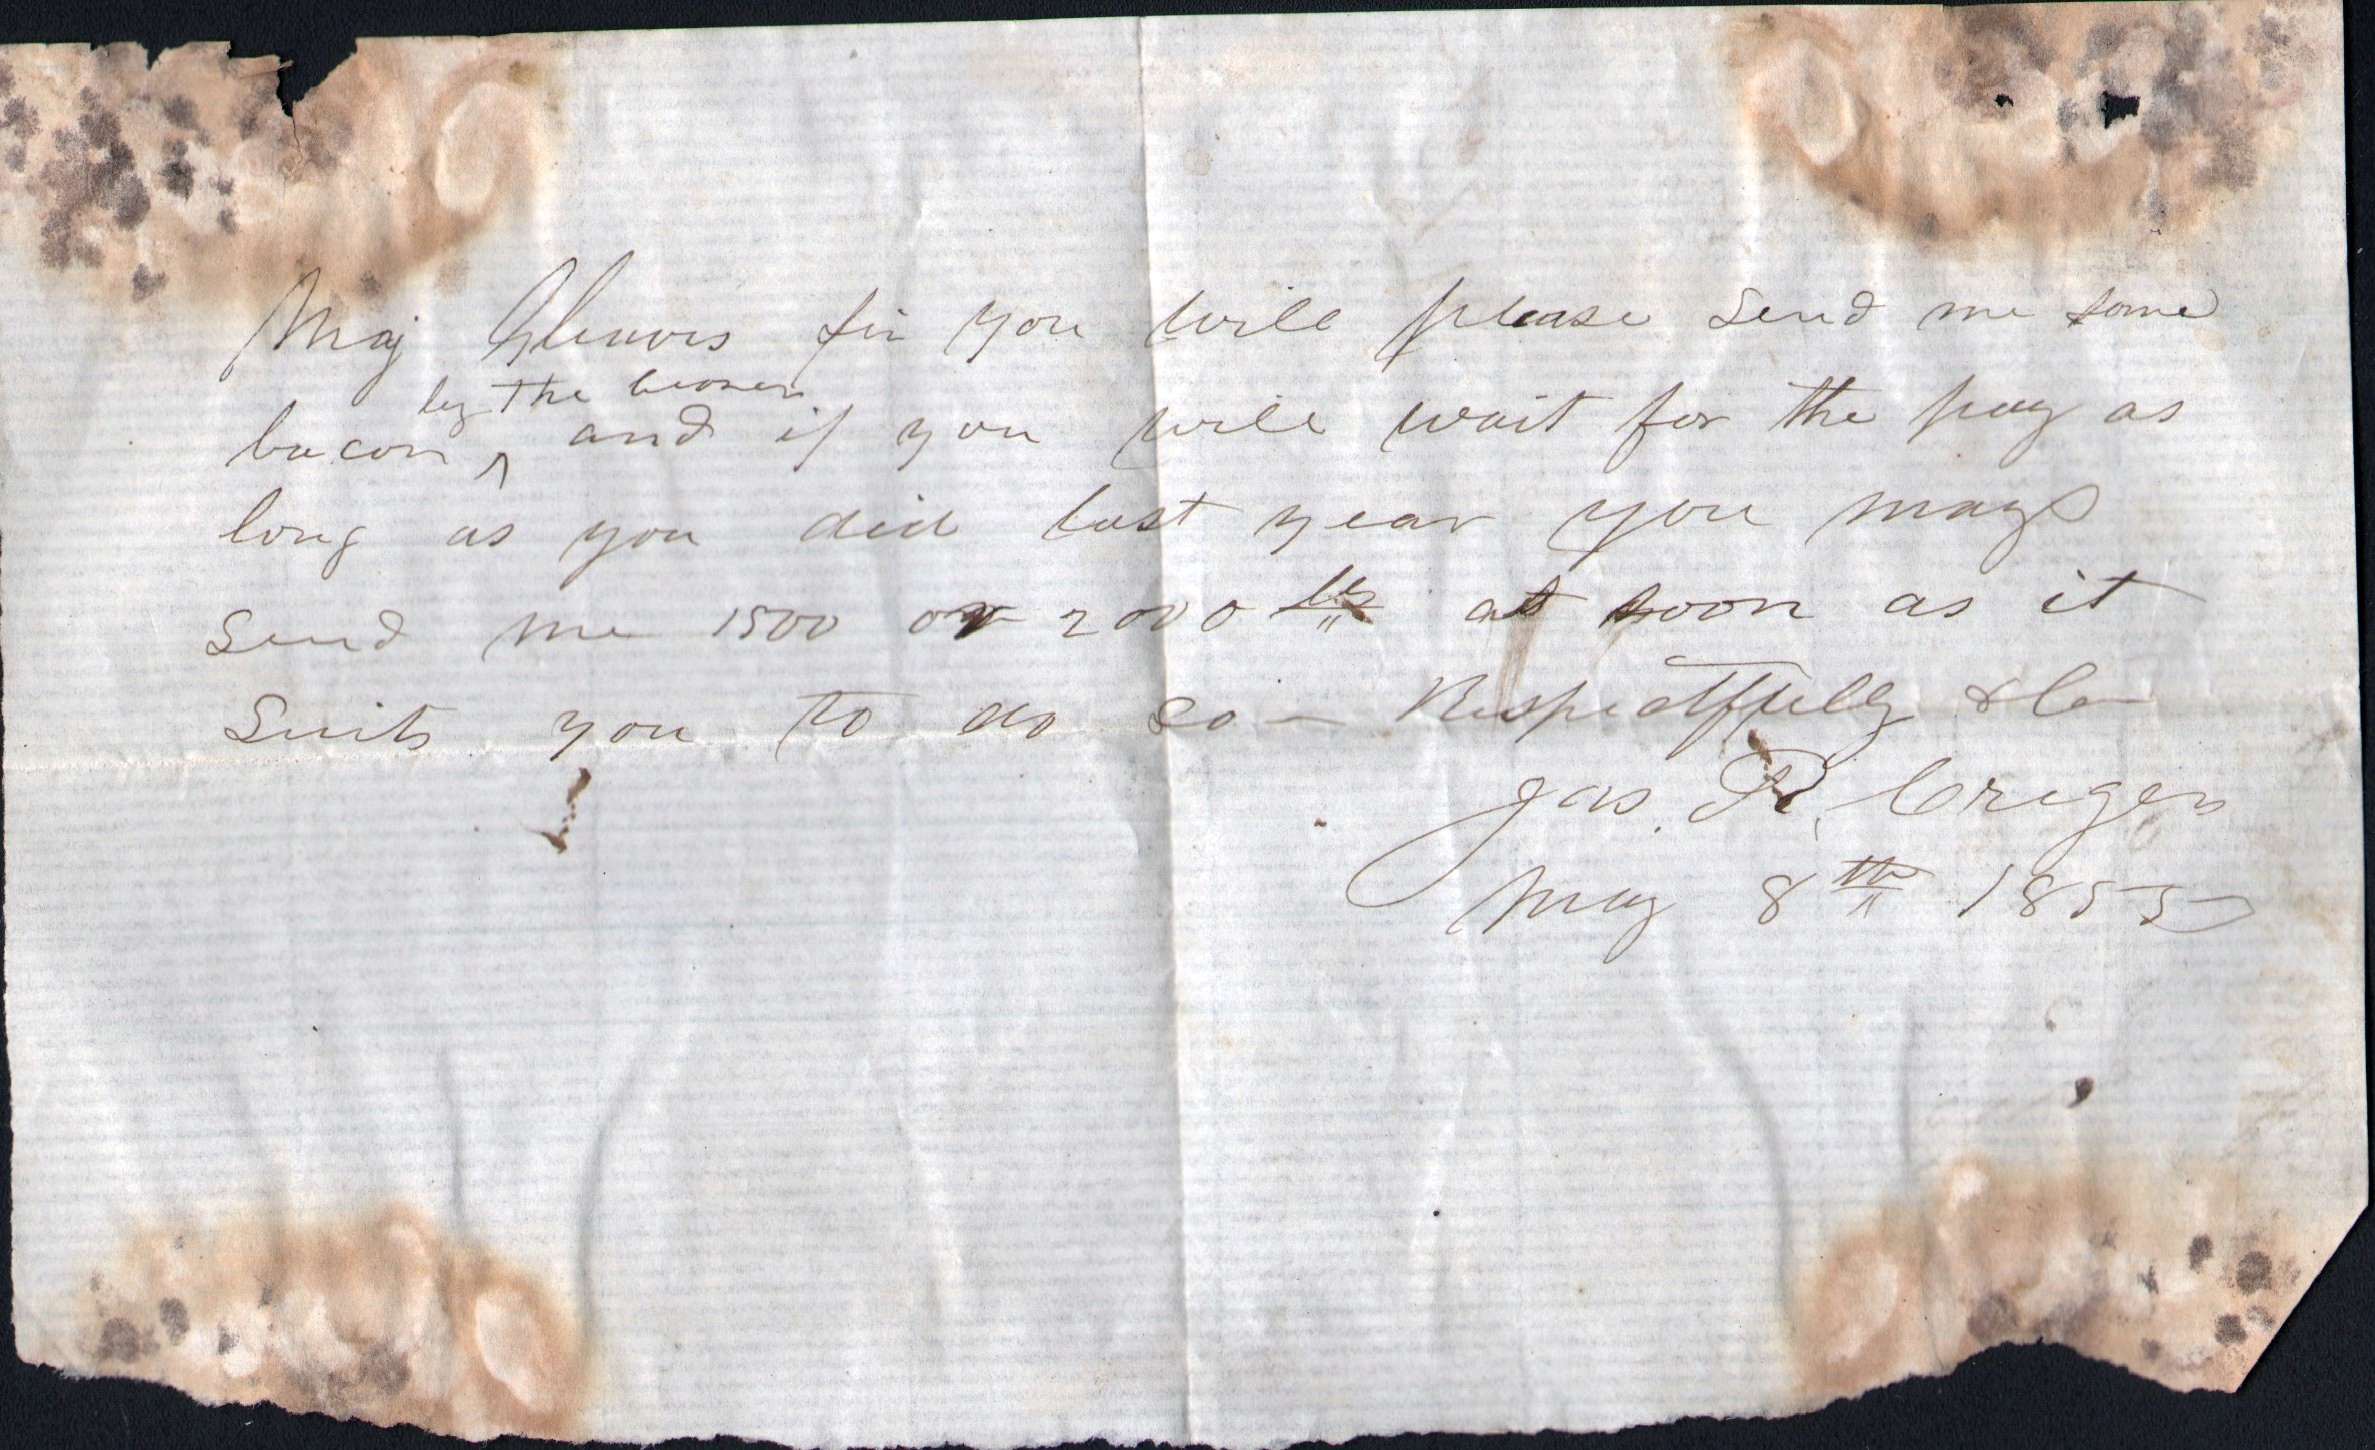 Maj Cleaves Sir you will please send me some
by the bearer
bacon ^ and if you will wait for the pay as
long as you did last year you may
Send me 1500 or 2000 lbs as soon as it
Suits you to do so — Respectfully &c
Jas. R. Crigers
May 8th 1855